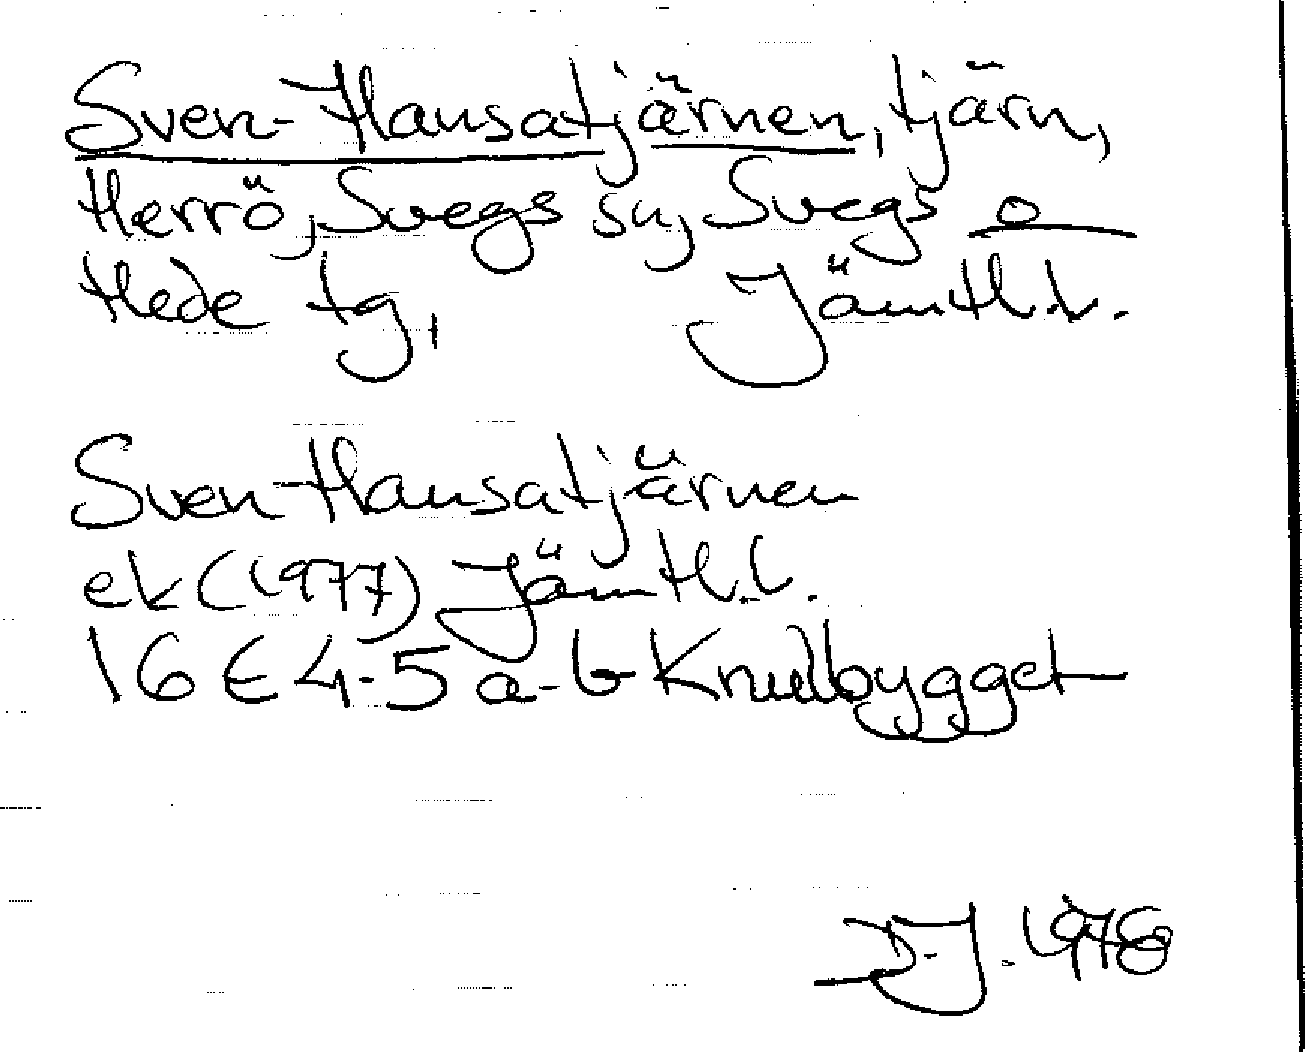 Sven-Hansatjärnen, tjärn,
Herrö, Svegs sn, Svegs o
Hede tg, Jämtl.l.
Sven-Hansatjärnen
ek (1977) Jämtl.l.
16 E 4-5 a-b Knulbygget
D.J. 1978